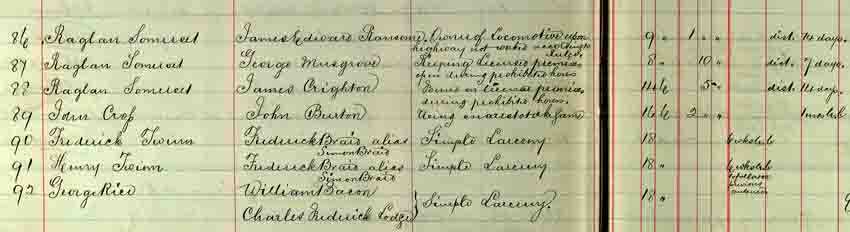 86 Raglan Somerset James Edward Ransome Owner of Locomotive upon 9 1 " " dist. 14 days.
highway not worked according to rules.
87 Raglan Somerset George Musgrove Keeping licensed premises 8 " 10 " dist. 7 days.
open during prohibited hours
88 Raglan Somerset James Crighton Found on licensed premises 14 6 5 " dist. 14 days.
during prohibited hours.
89 John Cross John Burton Using snares to take game 16 6 2 " " 1 month
90 Frederick Twinn Frederick Braid alias Simple Larceny 18 "
Simon Braid
91 Henry Twinn Frederick Braid alias Simple Larceny 18 "
Simon Braid
92 George Rice William Bacon Simple Larceny. 18 "
Charles Frederick Lodge
previous